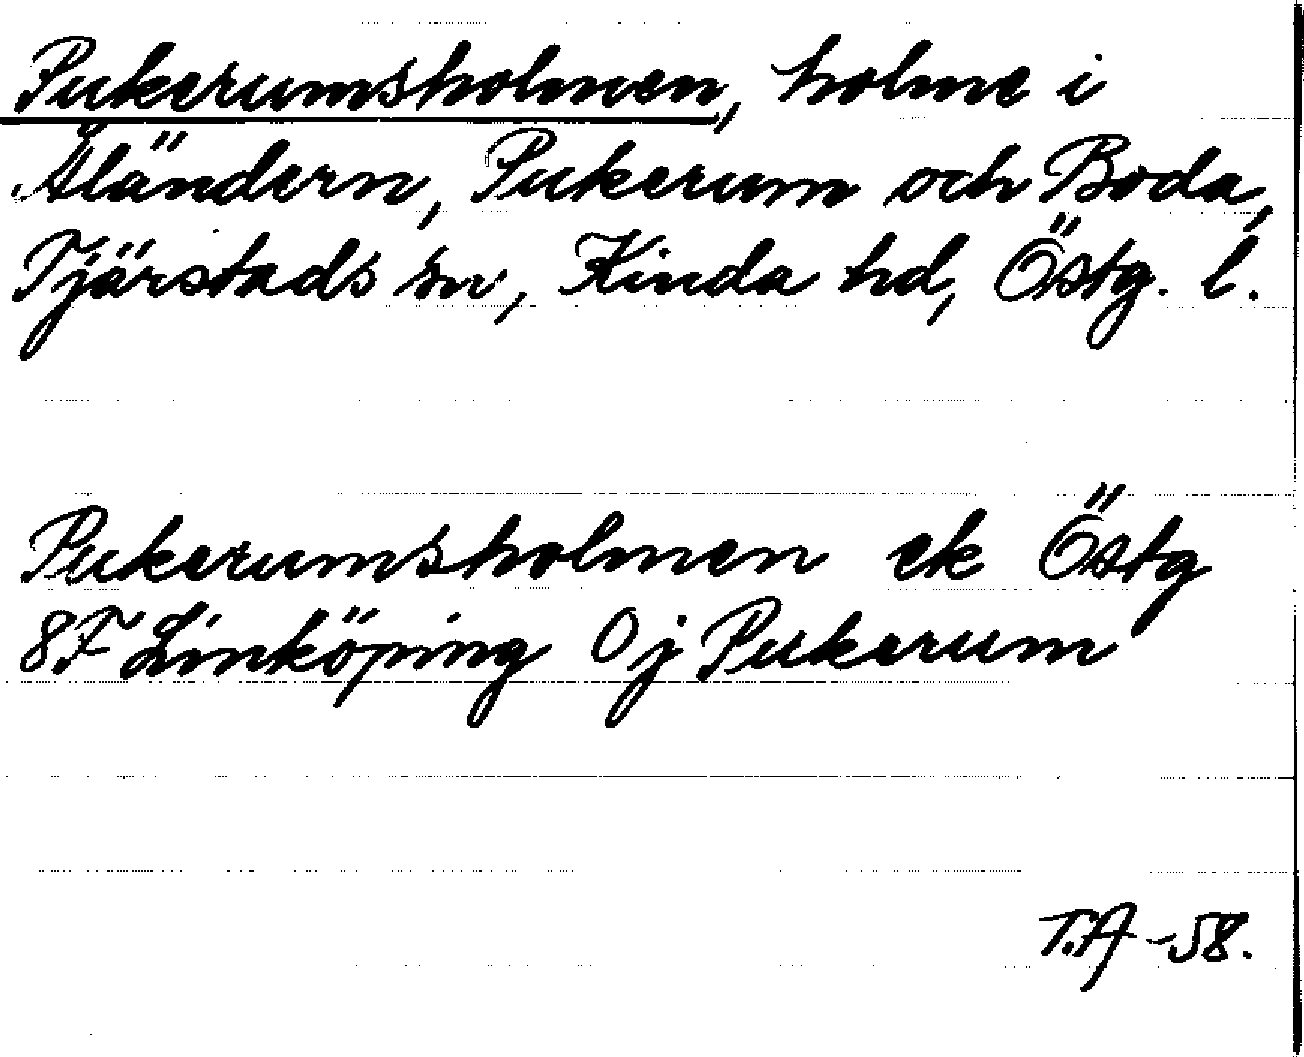 Pukerumsholmen, holme i
Äländern, Pukerum och Boda,
Tjärstads sn, Kinda hd, Östg. l.
Pukerumsholmen ek Östg
8F Linköping 0j Pukerum
T.A -58.